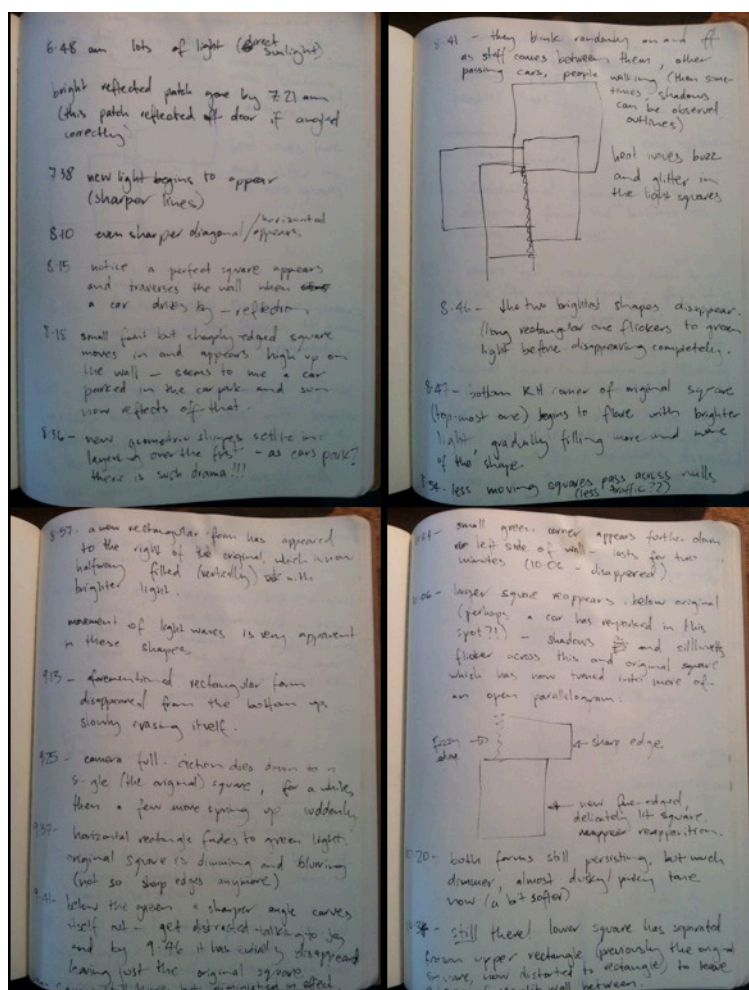 6.48 am lots of light (direct
sunlight)
bright reflected patch gone by 7.21 am
(this patch reflected off door if angled
correctly)
7.38 new light begins to appear
(sharper lines)
8.10 even sharper diagonal/horizontal
appears.
8.15 notice a perfect square appears
and traverses the wall when
a car drives by – reflection
8.18 small faint but sharply-edged square
moves in and appears high up on
the wall – seems to me a car
parked in the carpark and sun
now reflects off that.
8.36 – new geometric shapes settle in
layering over the first – as cars park?
there is such drama!!!
8.41 – they blink randomly on and off
as stuff comes between them, other
passing cars, people walking (then some-
times, shadows
can be observed
outlines)
heat waves buzz
and glitter in
the light squares
8.46 – the two brightest shapes disappear.
(long rectangular one flickers to green
light before disappearing completely.
8.47 – bottom RH corner of original square
(top-most one) begins to flare with brighter
light, gradually filling more and more
of the shape.
8.54. less moving squares pass across walls
(less traffic??)
8.57. a new rectangular form has appeared
to the right of the original, which is now
halfway filled (vertically) with
brighter light.
movement of light waves is very apparent
in these shapes.
9.13 – aforementioned rectangular form
disappeared from the bottom up,
slowly erasing itself.
9.25 – camera full. action dies down to a
single (the original) square, for a while
then a few more spring up suddenly
9.37 – horizontal rectangle fades to green light.
original square is dimming and blurring
(not so sharp edges anymore)
9.41 – below the green a sharper angle carves
itself out – get distracted talking to
and by 9.46 it has entirely disappeared
leaving just the original square.
small green corner appears further down
left side of wall – lasts for two
minutes (10.06 – disappeared).
larger square reappears below original
(perhaps a car has reparked in this
spot?!) – shadows and
flicker across this and original square
which has now turned into more of
an open parallelogram.
fuzzy
edge
sharp edge
new fine-edged,
delicately lit square.
reapparition.
both forms still persisting, but much
dimmer, almost dusky/ tone
now (a bit softer)
still there! lower square has separated
from upper rectangle (previously the original
square, now distorted to rectangle) to leave
wall between.